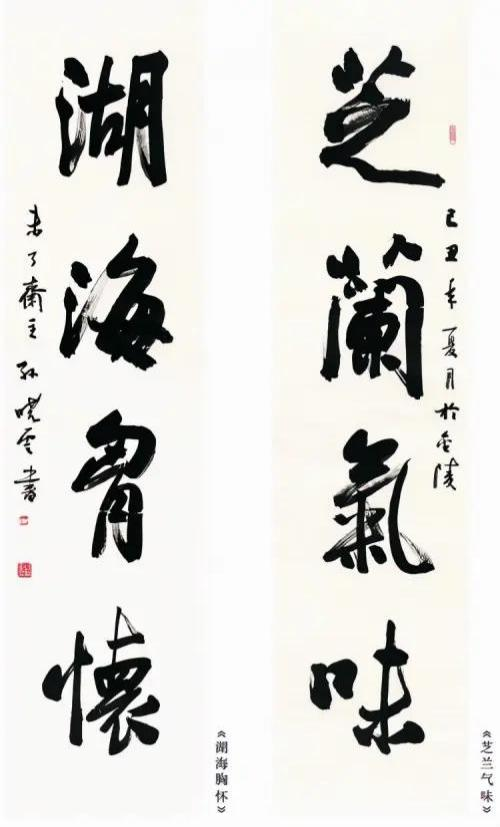 芝蘭氣味
己丑年夏月於金陵
《芝兰气味》
湖海胷懷
未了齋主孙晓雲書
《湖海胸怀》